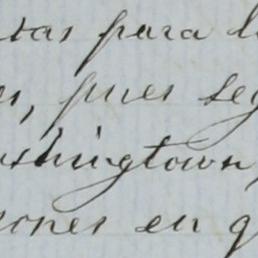 tas para l
s, pues seg
ashingtown,
ones en q